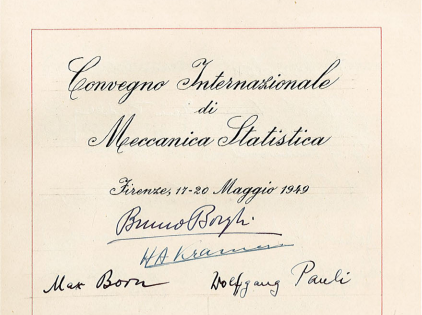 Convegno Internazionale
di
Meccanica Statistica
Firenze, 17-20 Maggio 1949
Bruno Borghi
HA Kramers
Max Born Wolfgang Pauli